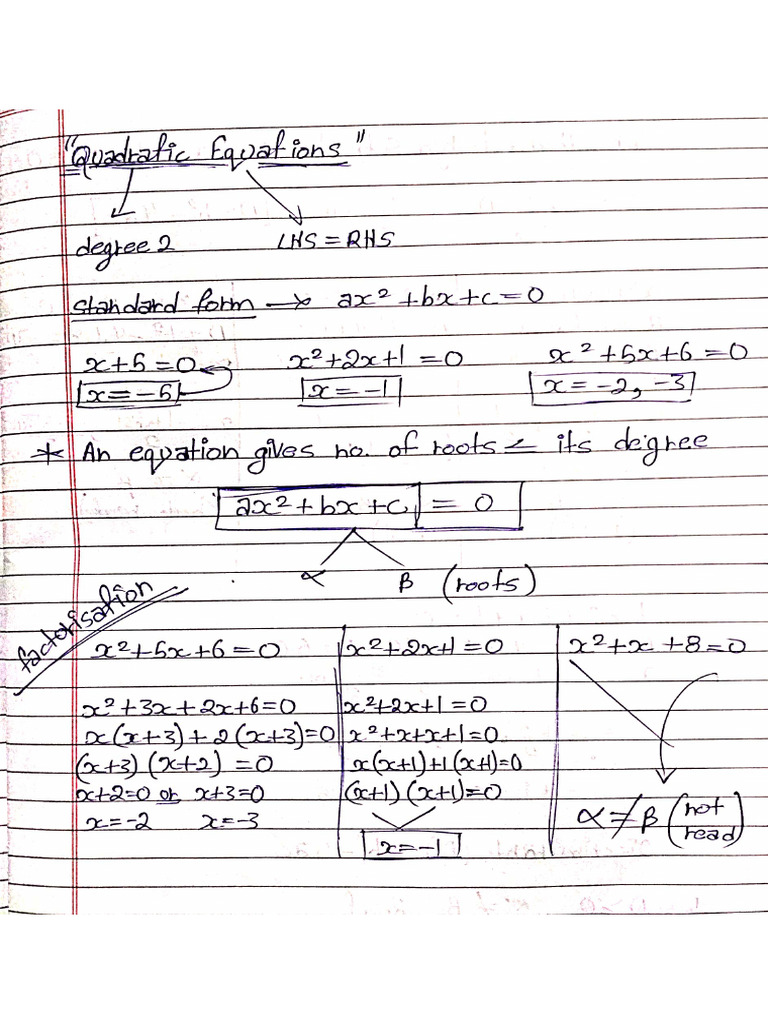 "Quadratic Equations"
degree 2 LHS = RHS
standard form → ax² + bx + c = 0
x + 5 = 0 x² + 2x + 1 = 0 x² + 5x + 6 = 0
x = -5 x = -1 x = -2, -3
* An equation gives no. of roots ≤ its degree
ax² + bx + c = 0
α β (roots)
factorisation
x² + 5x + 6 = 0
x² + 3x + 2x + 6 = 0
x(x+3) + 2(x+3) = 0
(x+3) (x+2) = 0
x+2=0 or x+3=0
x = -2 x = -3
x² + 2x + 1 = 0
x² + 2x + 1 = 0
x² + x + x + 1 = 0
x(x+1) + 1(x+1) = 0
(x+1) (x+1) = 0
x = -1
x² + x + 8 = 0
α ≠ β (not
read)